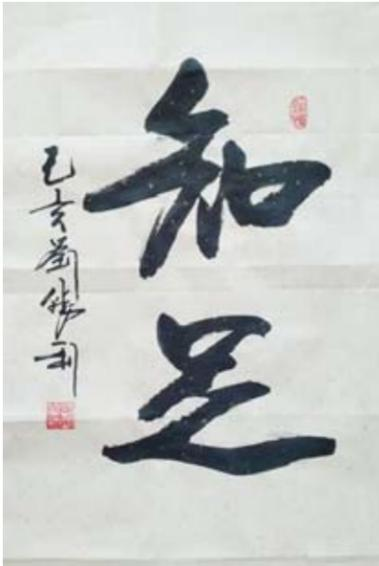 知足
己亥劉勝利